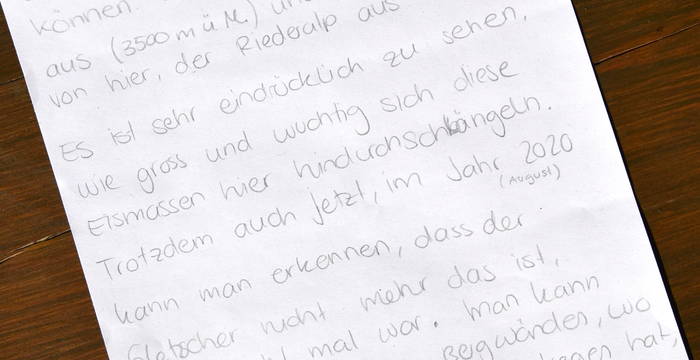 können.
aus (3500 m ü M.) und
von hier, der Riederalp aus
Es ist sehr eindrücklich zu sehen,
wie gross und wuchtig sich diese
Eismassen hier hindurchschlängeln.
Trotzdem auch jetzt, im Jahr 2020
(August)
kann man erkennen, dass der
Gletscher nicht mehr das ist,
mal war. Man kann
Bergwänden, wo
hat,